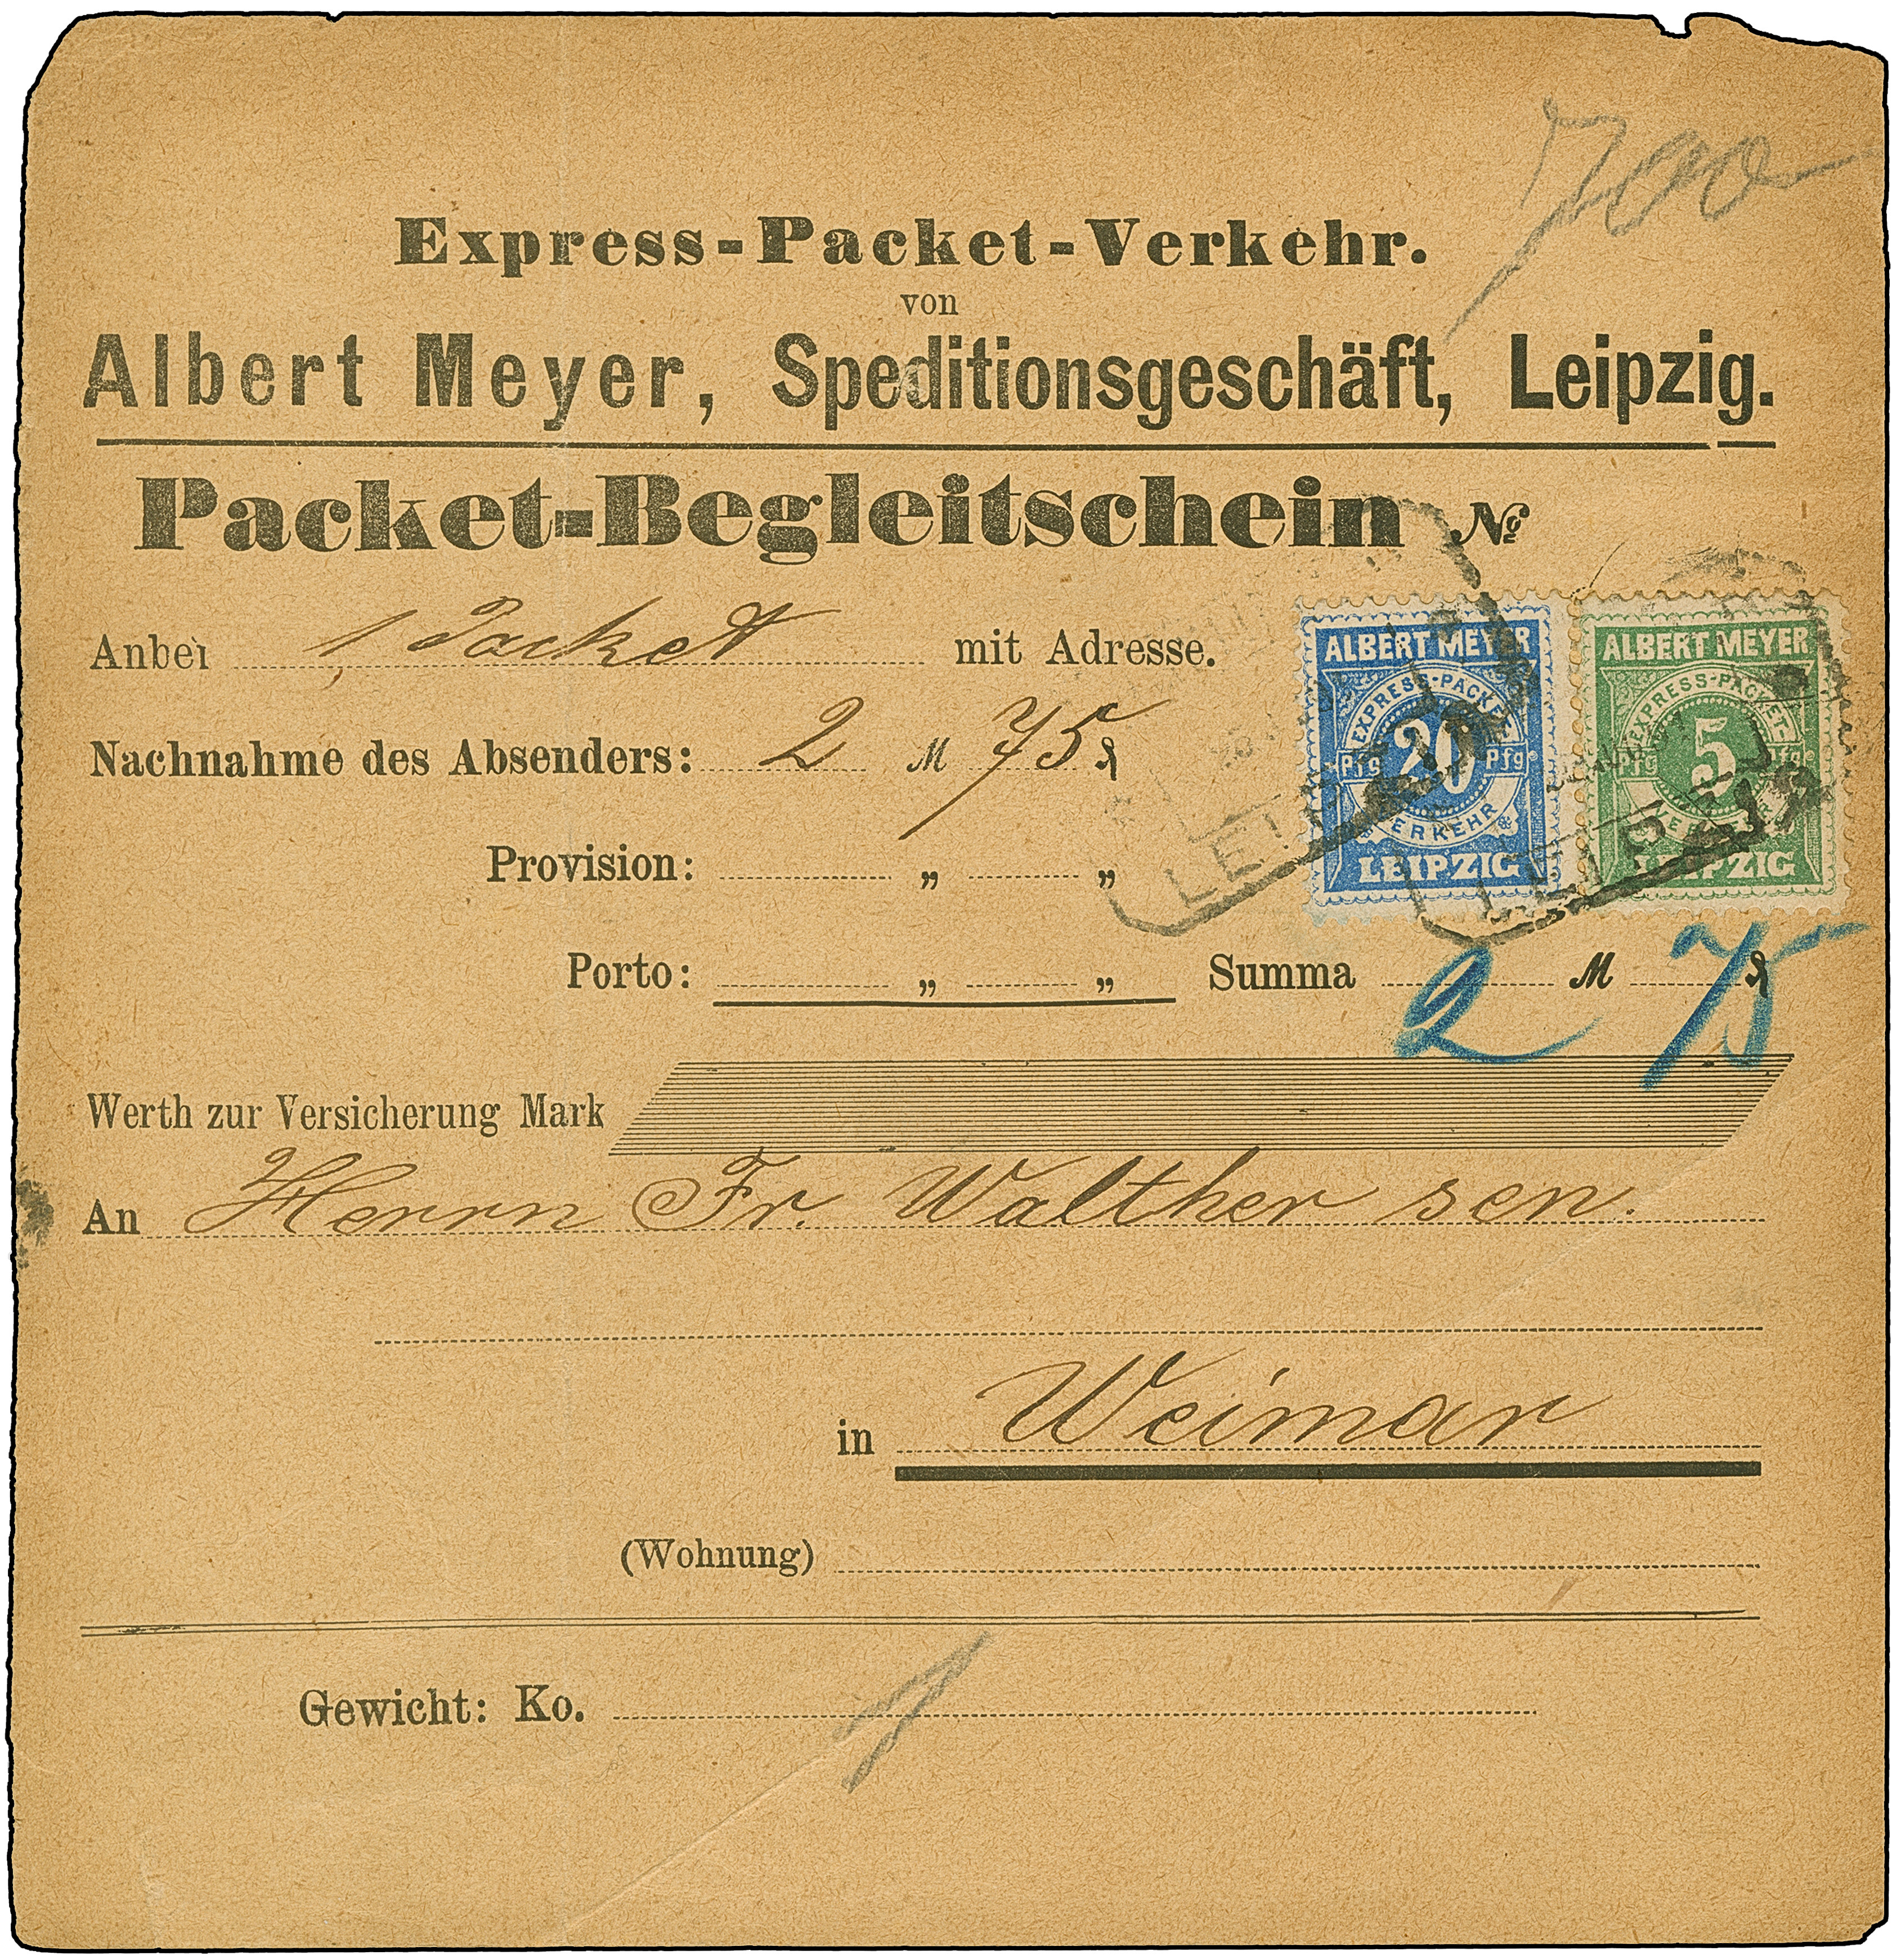 Express-Packet-Verkehr.
von
Albert Meyer, Speditionsgeschäft, Leipzig.
Packet-Begleitschein №
Anbei 1 Packet mit Adresse.
ALBERT MEYER
EXPRESS-PACKET-
20
Pfg Pfg
VERKEHR
LEIPZIG
ALBERT MEYER
EXPRESS-PACKET-
5
Pfg Pfg
VERKEHR
LEIPZIG
LEIPZIG
LEIPZIG
Nachnahme des Absenders: 2 M 75 ₰
Provision: „ „
Porto: „ „ Summa 2 M 75 ₰
Werth zur Versicherung Mark
An Herrn Fr. Walther sen.
in Weimar
(Wohnung)
Gewicht: Ko. 1